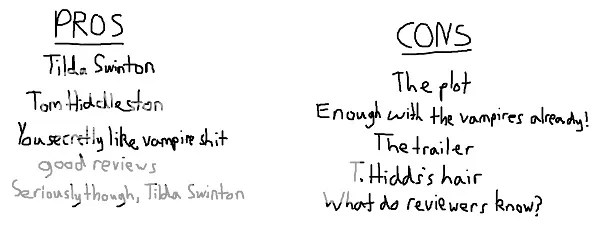 PROS
Tilda Swinton
Tom Hiddleston
You secretly like vampire shit
good reviews
Seriously though, Tilda Swinton
CONS
The plot
Enough with the vampires already!
The trailer
T. Hidds's hair
What do reviewers know?